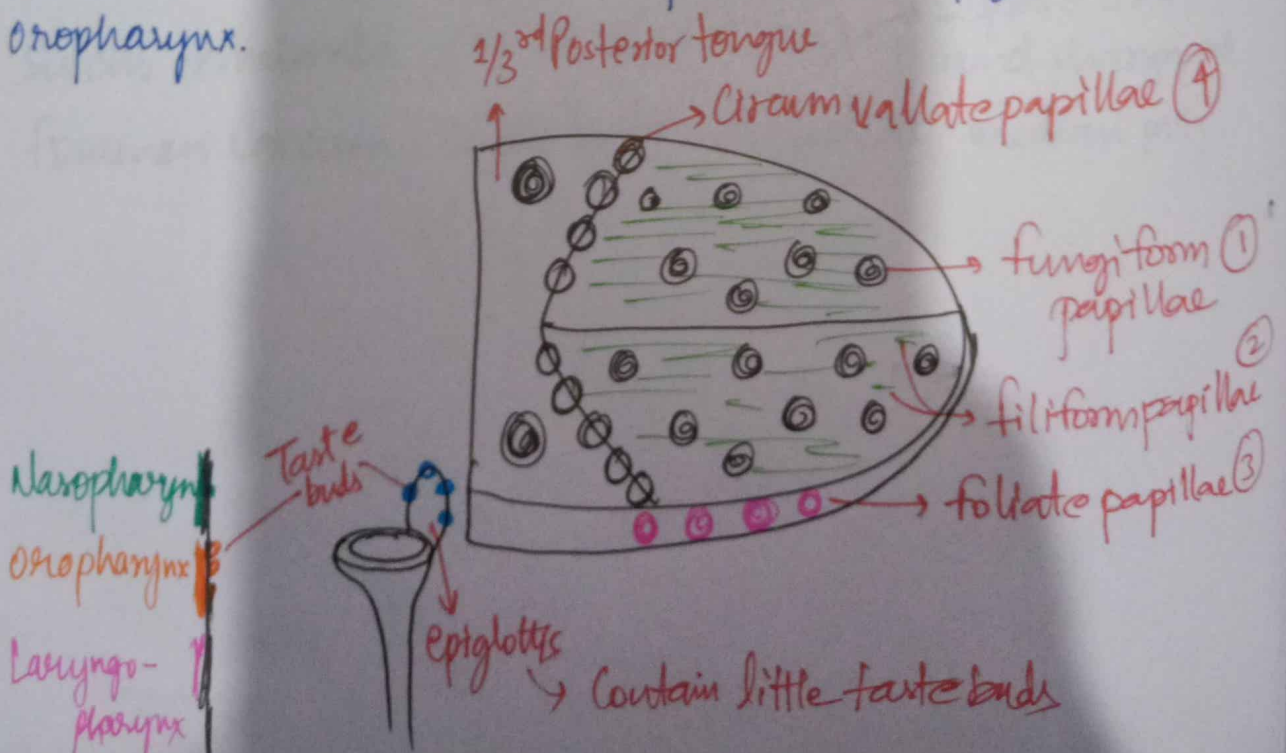 oropharynx.
1/3rd Posterior tongue
Circumvallate papillae 4
fungiform 1
papillae
2
filiform papillae
foliate papillae 3
Taste
buds
Nasopharynx
oropharynx
Laryngo-
pharynx
epiglottis
Contain little taste buds